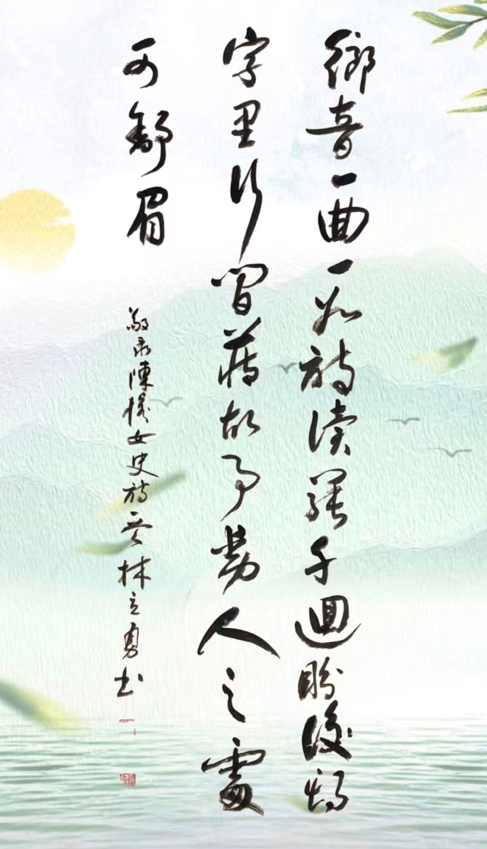 鄉音一曲一首詩讀罷千迴盼後
字里行間藏故事動人之處
可舒眉
敬录陳 女史詩 林立勇书